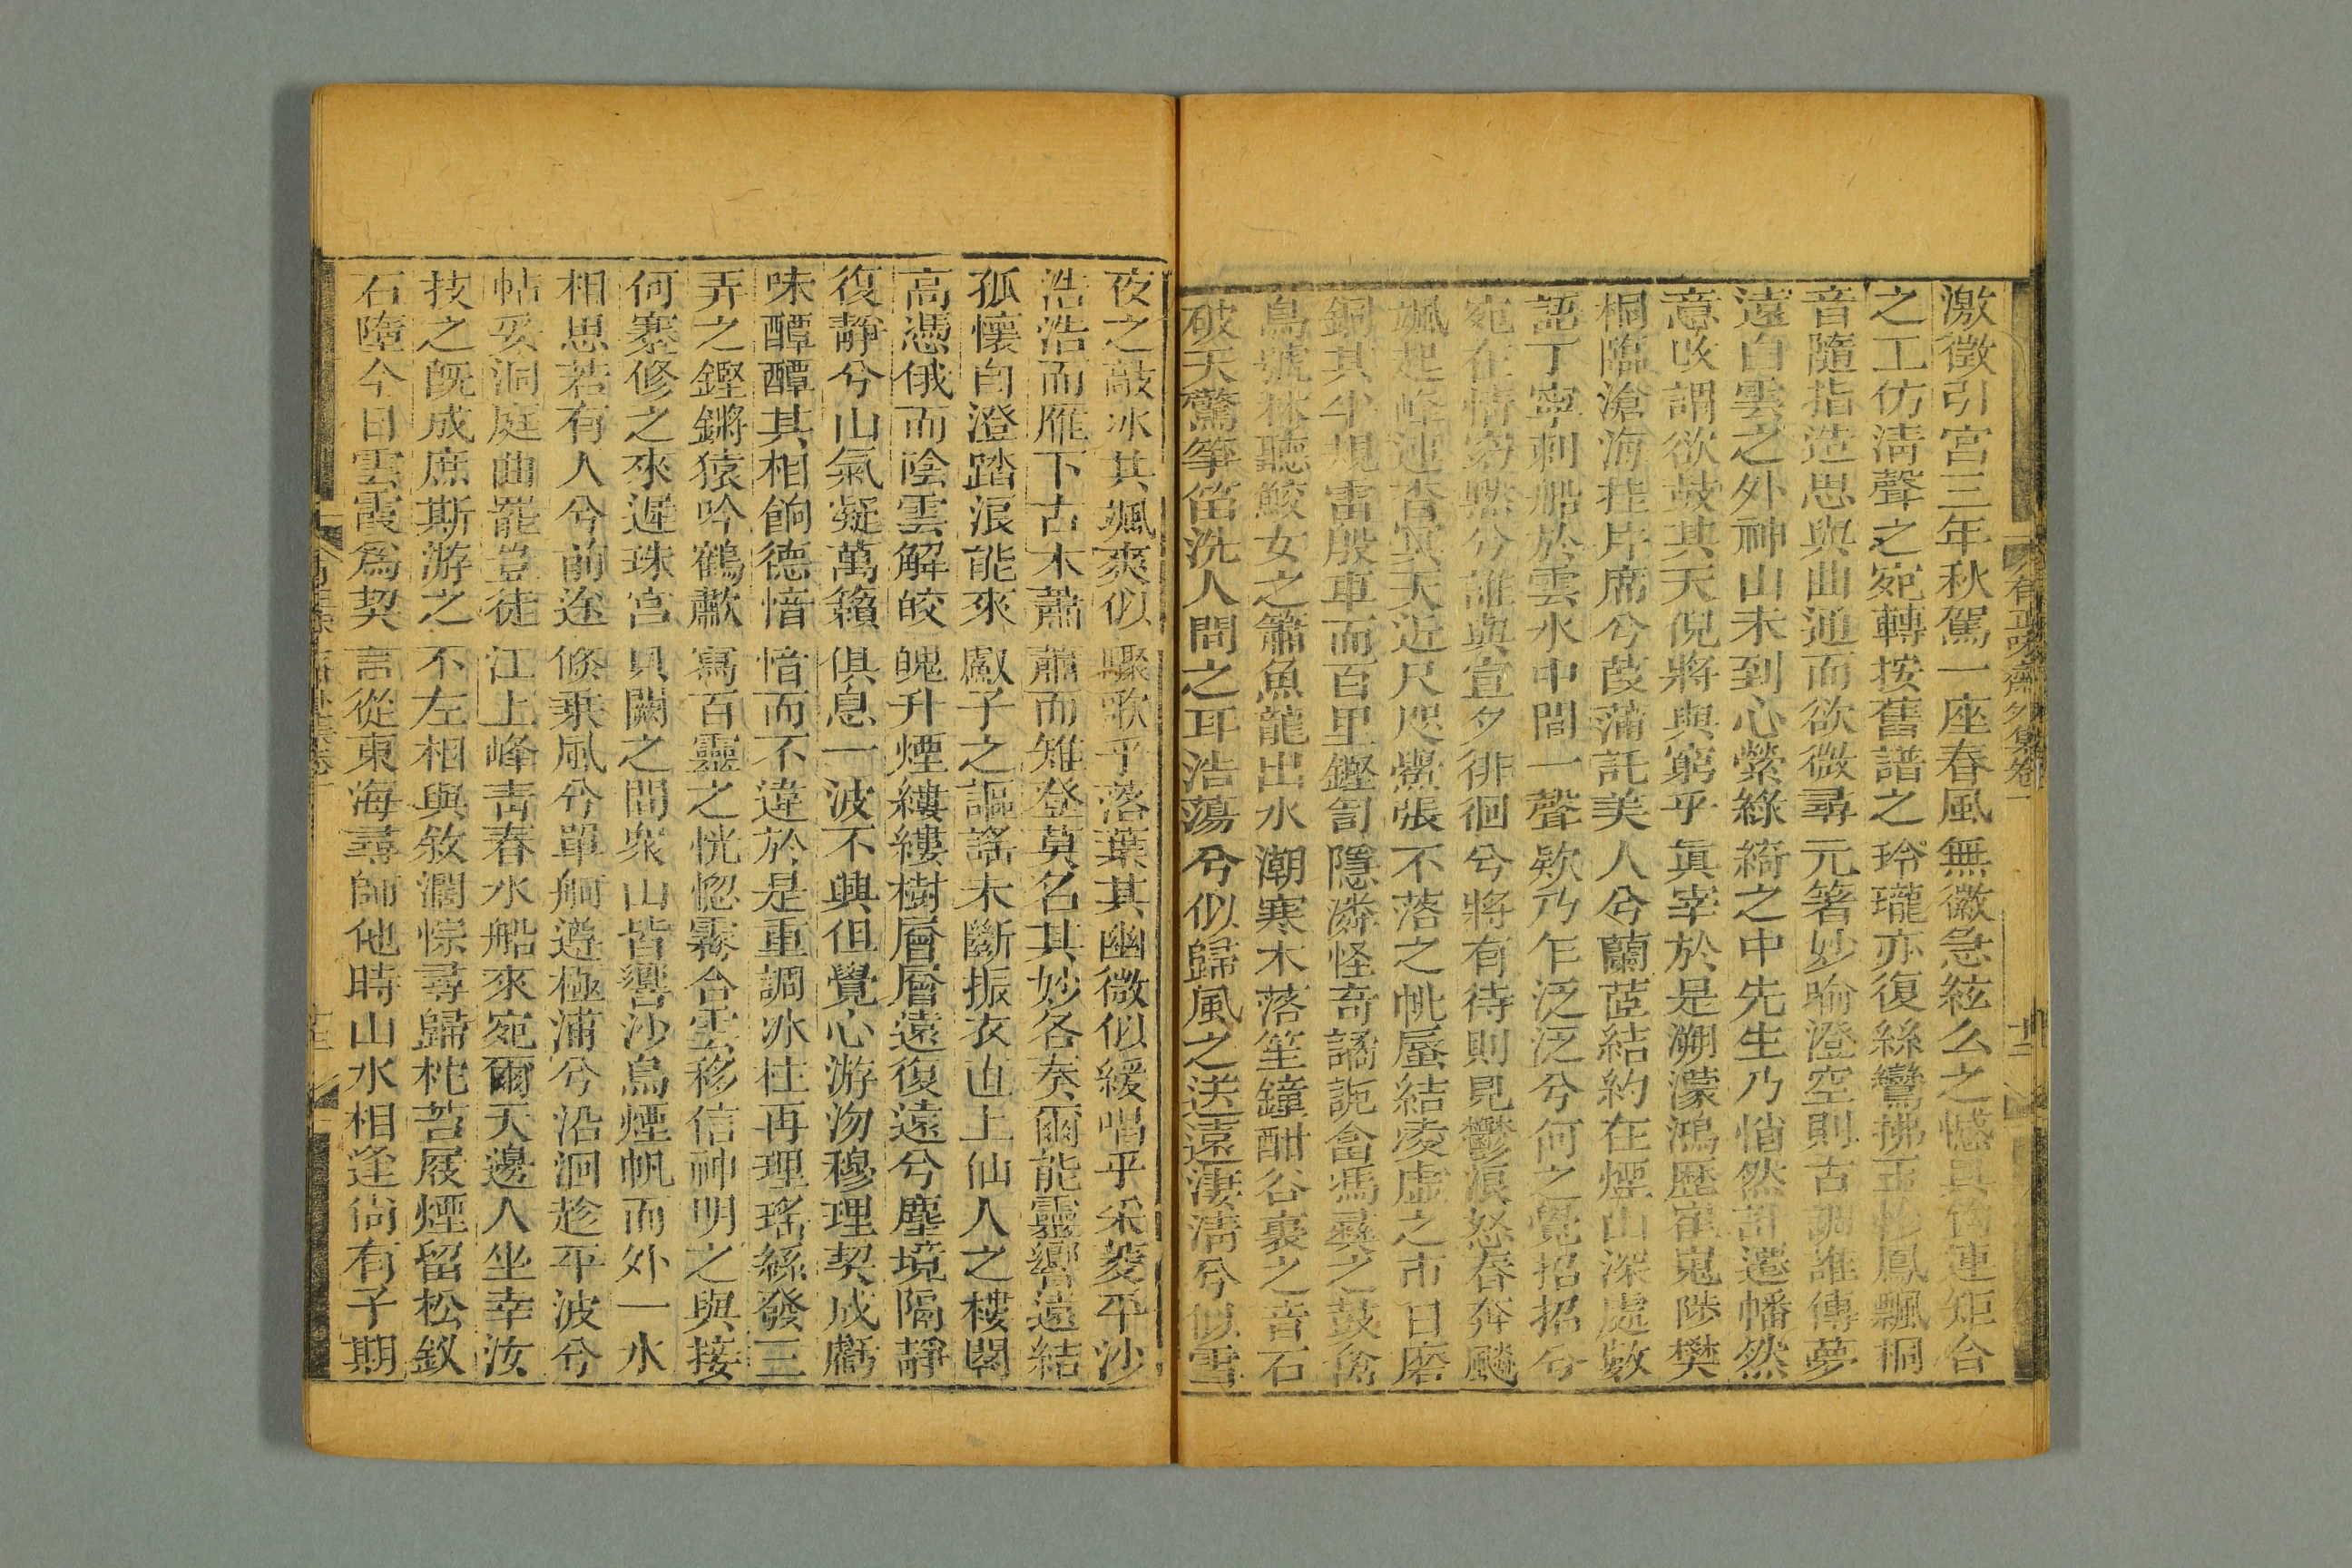 激徵引宮三年秋駕一座春風無徽急絃么之憾具筠連矩合
之工仿淸聲之宛轉按舊譜之玲瓏亦復絲鸞拂玉軫鳳飄桐
音隨指造思與曲通而欲微尋元箸妙喻澄空則古調誰傳夢
遠白雲之外神山未到心縈綠綺之中先生乃悄然計遷幡然
意改謂欲鼓其天倪將與窮乎眞宰於是溯濛鴻歷崔嵬陟樊
桐臨滄海挂片席兮葭蒲託美人兮蘭茝結約在煙山深處數
認丁寧刺船於雲水中閒一聲欵乃乍泛泛兮何之覺招招兮
宛在情窈然兮誰與宣夕徘徊兮將有待則見鬱浪怒舂奔飈
颯起峰連杳冥天近尺咫黌張不落之帆蜃結凌虛之市日磨
銅其半規雷殷車而百里鏗訇隱潾怪奇譎詭畣馮彞之鼓傖
鳥號林聽鮫女之簫魚龍出水潮寒木落笙鐘酣谷裏之音石
破天驚筝笛洗人間之耳浩蕩兮似歸風之送遠淒淸兮似雪
夜之敲冰其颯爽似驟歌乎落葉其幽微似緩唱乎采菱平沙
浩浩而雁下古木蕭蕭而雉登莫名其妙各奏爾能靈響遠結
孤懷自澄踏浪能來獻子之謳謠未斷振衣直上仙人之樓閣
高憑俄而陰雲解皎魄升煙縷縷樹層層遠復遠兮塵境隔靜
復靜兮山氣凝萬籟俱息一波不興但覺心游沕穆理契成虧
味醰醰其相餉德愔愔而不違於是重調冰柱再理瑤絲發三
弄之鏗鏘猿吟鶴歗寫百靈之恍惚霧合雲移信神明之與接
何蹇修之來遲珠宮貝闕之間衆山皆響沙鳥煙帆而外一水
相思若有人兮前途倏乘風兮單舸遵極浦兮沿洄趁平波兮
帖妥洞庭曲罷豈徒江上峰靑春水船來宛爾天邊人坐幸汝
技之旣成庶斯游之不左相與敘濶悰尋歸柁苔屐煙留松釵
石墮今日雲霞爲契言從東海尋師他時山水相逢尙有子期